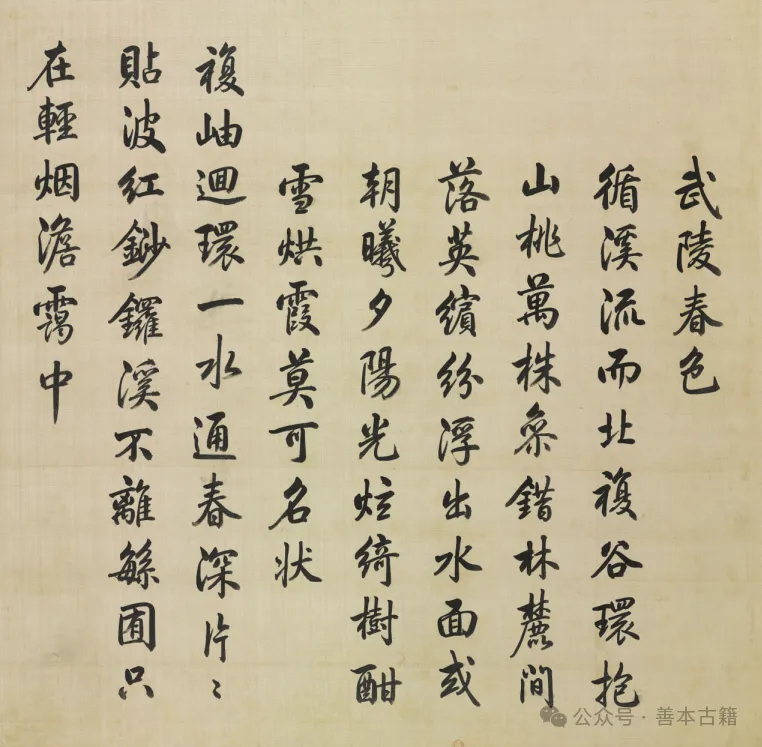 武陵春色
循溪流而北複谷環抱
山桃萬株叅錯林麓間
落英繽紛浮出水面或
朝曦夕陽光炫綺樹酣
雪烘霞莫可名状
複岫迴環一水通春深片〻
貼波紅鈔鑼溪不離繇圃只
在輕烟澹靄中
公众号·善本古籍